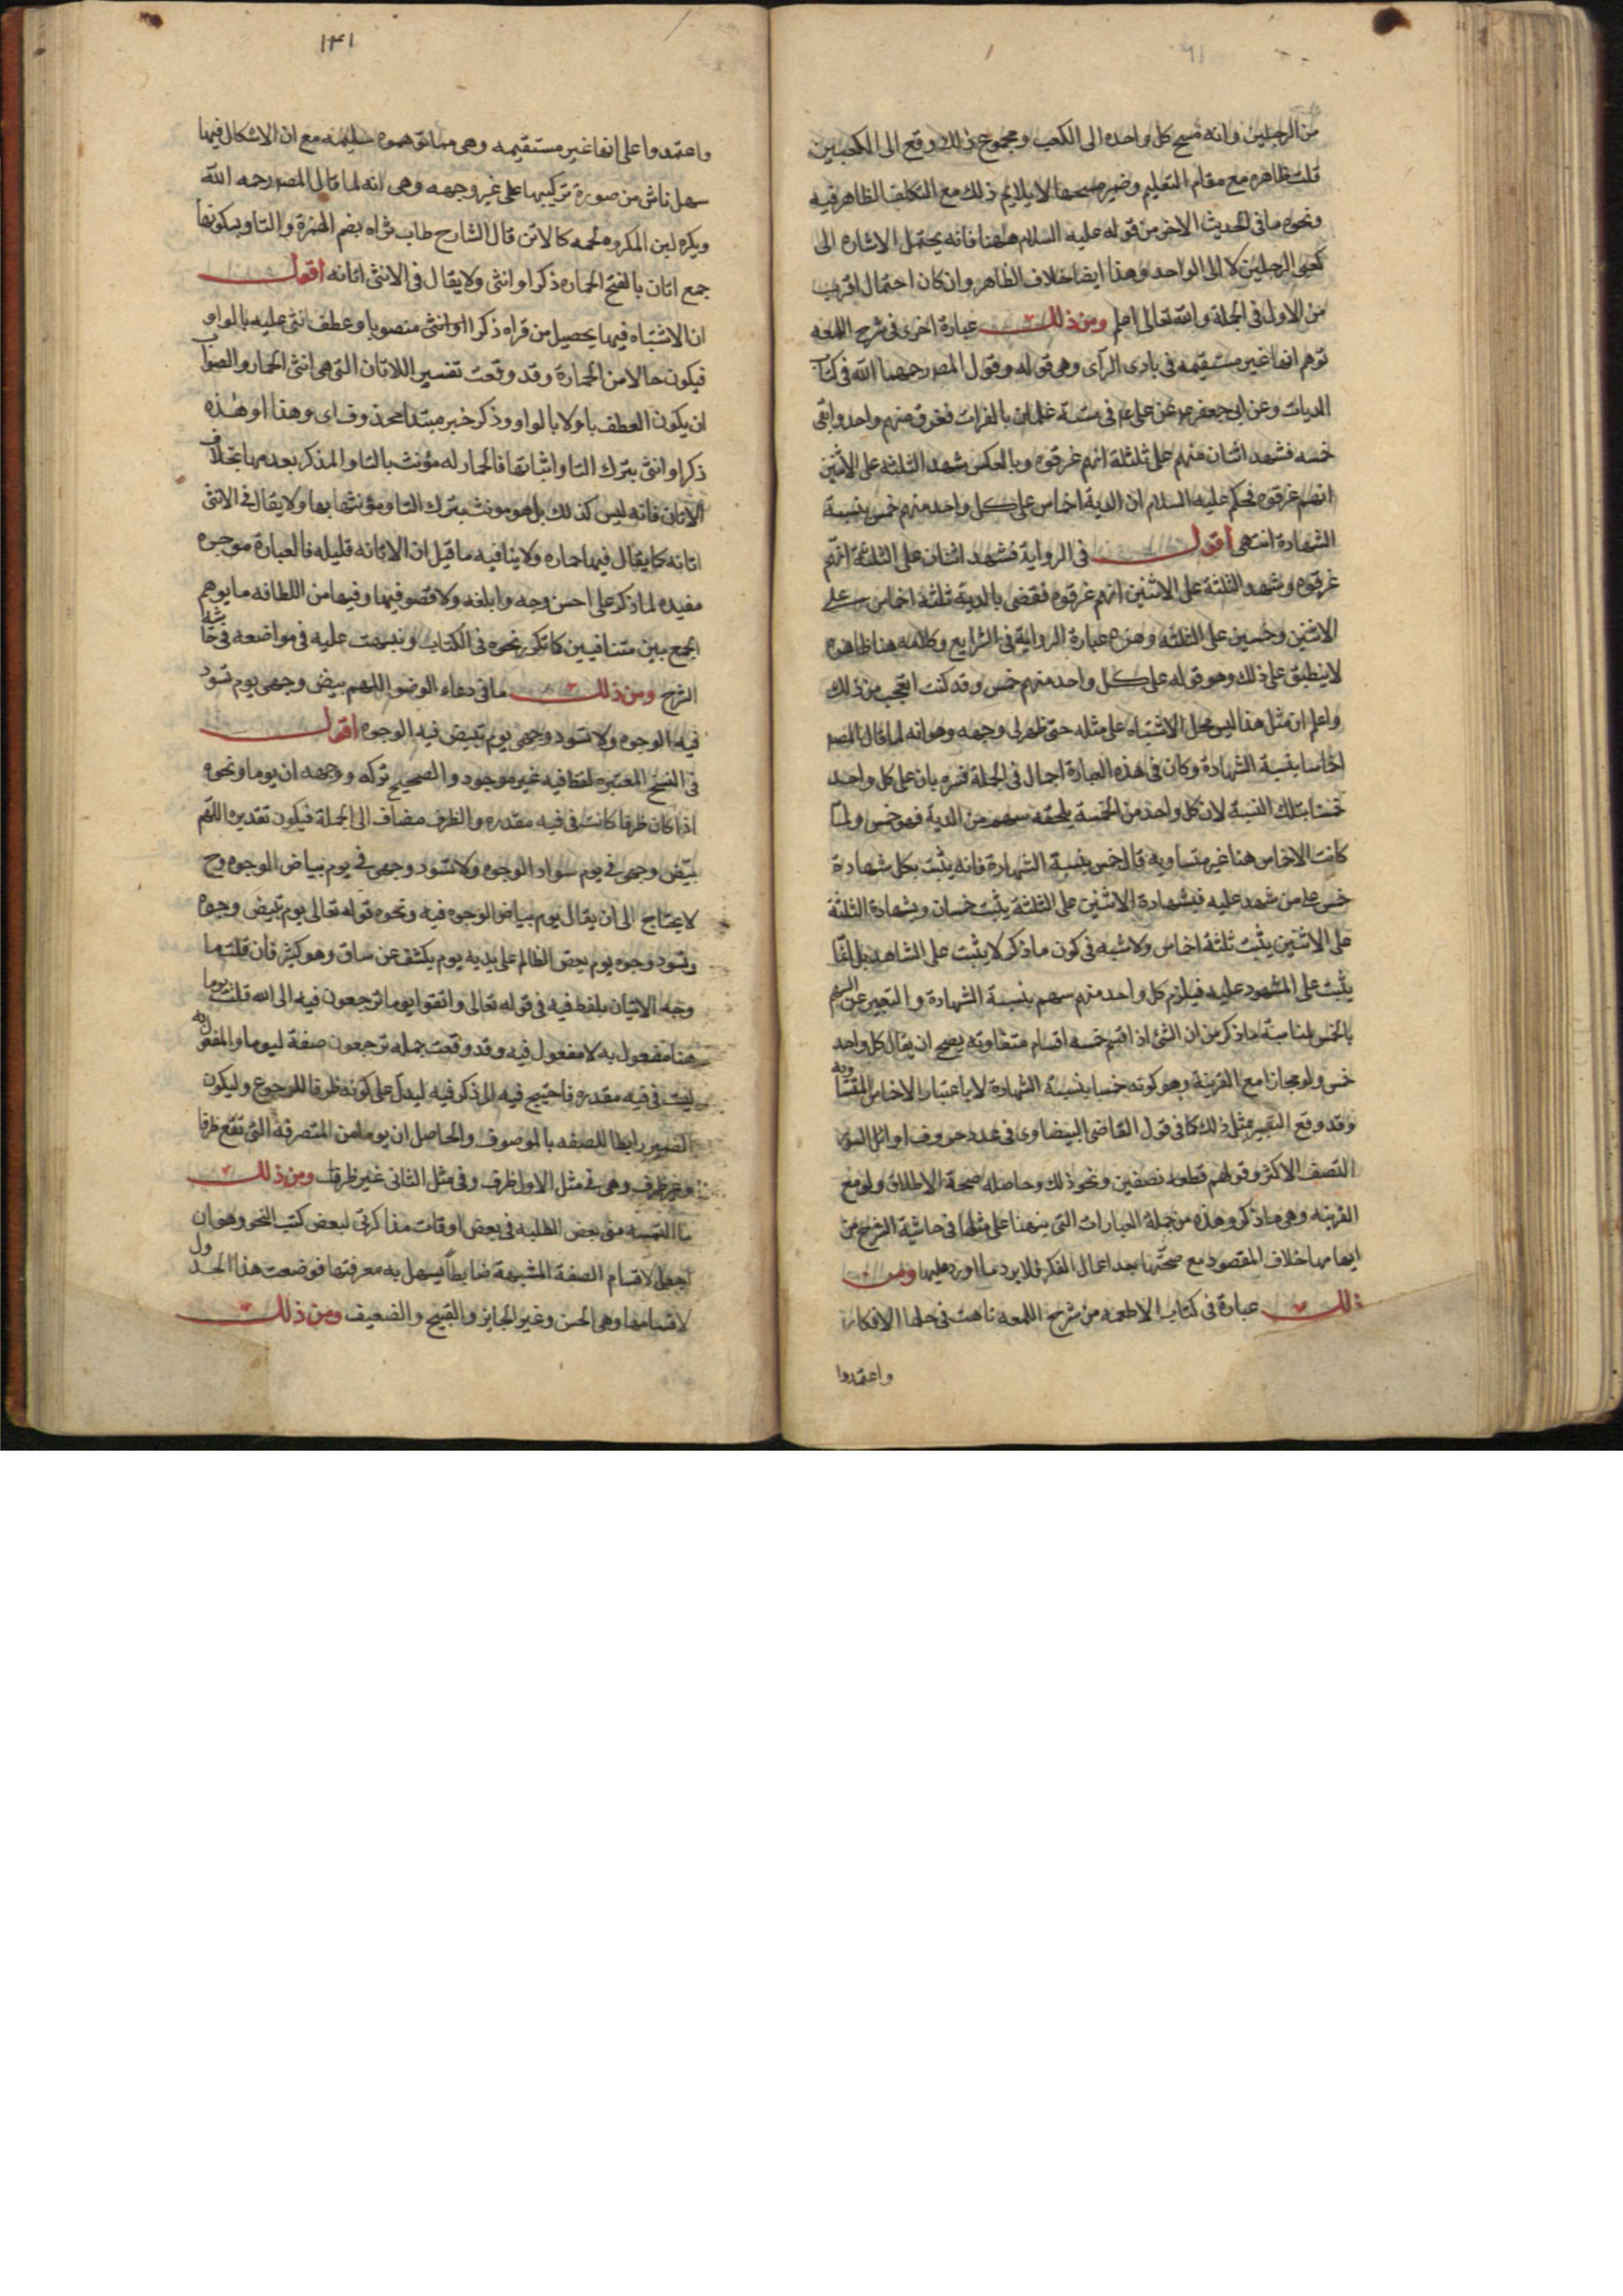 من الرجلين وانه مسح كل واحده الى الكعب ومجموع ذلك وقع الى الكعبين
قلت ظاهره مع مقام التعليم وضمير مسحها لا يلايم ذلك مع التكلف الظاهر فيه
ونحوه ما فى الحديث الاخر من قوله عليه السلام ههنا فانه يحتمل الاشاره الى
كعبى الرجلين لا الى الواحد وهذا ايضا خلاف الظاهر وان كان احتمال اقرب
من الاول فى الجملة والله تعالى اعلم ومن ذلك عبارة اخرى فى شرح اللمعه
توهم انها غير مستقيمه فى بادى الرآى وهى قوله وقول المصـ رحمهما الله فى كتاب
الديات وعن ابى جعفر عن على ع فى ستة غلمان بالفرات فغرق منهم واحد وابقى
خمسه فشهد اثنان منهم على ثلثلة انهم غرقوه وبالعكس شهد الثلثه على الاثنين
انهم غرقوه فحكم عليه السلام ان الدية اخماس على كل واحد منهم خمس بنسبة
الشهادة انتهى اقول فى الرواية فشهد اثنان على الثلثة انهم
غرقوه وشهد الثلثة على الاثنين انهم غرقوه فقضى بالدية ثلثة اخماس على
الاثنين وخمسين على الثلثه وهذه عبارة الرواية فى الشرايع وكلامه هنا ظاهره
لا ينطبق على ذلك وهو قوله على كل واحد منهم خمس وقد كنت اتعجب من ذلك
واعلم ان مثل هذا ليس محل الاشتباه على مثله حتى ظهر لى وجهه وهو انه لما قال المصـ
اخماسا بنسبة الشهادة وكان فى هذه العبارة اجمال فى الجملة فسره بان على كل واحد
خمسا بتلك النسبة لان كل واحد من الخمسة يلحقه سهم من الدية فهو خمس ولما
كانت الاخماس هنا غير متساويه قال خمس بنسبة الشهادة فانه يثبت بكل شهادة
خمس على من شهد عليه فبشهادة الاثنين على الثلثة يثبت خمسان وبشهادة الثلثة
على الاثنين يثبت ثلثة اخماس ولا شبه فى كون ما ذكر لا يثبت على الشاهد بل انما
يثبت على المشهود عليه فيلزم كل واحد منهم سهم بنسبة الشهادة والتعبير عن السهم
بالخمس لمناسبة ما ذكر من ان الشئ اذا قسم خمسه اقسام متفاوته يصح ان يقال كل واحد
خمس ولو مجازا مع القرينة وهو كونه خمسا بنسبة الشهادة لا باعتبار الاخماس المتساوية
وقد وقع التعبير بمثل ذلك كما فى قول القاضى البيضاوى فى عدد حروف اوائل السور
النصف الاكثر وقولهم قطعه نصفين ونحو ذلك وحاصله صحة الاطلاق ولو مع
القرينه وهى ما ذكر وهذه من جملة العبارات التى نبهنا على مثلها فى حاشية الشرح من
ايهامها خلاف المقصود مع صحتها بعد اعمال الفكر فلا يرد ما اورد عليها ومن
ذلك عبارة فى كتاب الاطعمه من شرح اللمعه تاهت فى حلها الافكار
واعتمدوا
۱۴۱
واعتمدوا على انها غير مستقيمه وهى مع ان الاشكال فيها
سهل ناش من صورة تركيبها على غير وجهه وهى انه لما قال المصـ رحمه الله
ويكره لبن المكروه لحمه كالاتن قال الشارح طاب ثراه بضم الهمزة والتاو بسكونها
جمع اتان بالفتح الحماره ذكرا وانثى ولا يقال فى الانثى اتانه اقول
ان الاشتباه فيها يحصيل من قراه ذكرا او انثى منصوبا وعطف انثى عليه بالواو
فيكون حالا من الحمارة وقد وقعت تفسير اللاتان التى هى انثى الحمار والصواب
ان يكون العطف باو لا بالواو وذكر خبر مبتدا محذوف اى وهذا او هذه
ذكر او انثى بترك التا واثباتها فالحمار له مؤنث بالتا والمذكر بعدمها بخلاف
الاتان فانه ليس كذلك بل هو مونث بترك التا ومؤنثها بها ولا يقال فى الانثى
اتانه كما يقال فيها حماره ولا ينافيه ما قيل ان الاتانه قليله فالعبارة موجزه
مفيده لما ذكر على احسن وجه وابلغه ولا قصور فيها وفيها من اللطافه ما يوهم
الجمع بين متنافيين كما تكرر نحوه فى الكتاب ونبهت عليه فى مواضعه فى حاشية
الشرح ومن ذلك ما فى دعاء الوضو اللهم بيض وجهى يوم تسود
فيه الوجوه ولا تسود وجهى يوم تبيض فيه الوجوه اقول
فى النسخ المعتبره لفظ فيه غير موجود والصحيح تركه ووجهه ان يوما ونحوه
اذا كان ظرفا كانت فى فيه مقدره والظرف مضاف الى الجملة فيكون تقديره اللهم
بيض وجهى فى يوم سواد الوجوه ولا تسود وجهى فى يوم بياض الوجوه وح
لا يحتاج الى ان يقال يوم بياض الوجوه فيه ونحوه قوله تعالى يوم تبيض وجوه
وتسود وجوه يوم يعض الظالم على يديه يوم يكشف عن ساق وهو كثير فان قلت ما
وجه الاتيان بلفظ فيه فى قوله تعالى واتقوا يوما ترجعون فيه الى الله قلت يوما
هنا مفعول به لا مفعول فيه وقد وقعت جمله ترجعون صفة ليوما والمفعول به
ليت فى فيه مقدره فاحتيج فيه الى ذكر فيه ليدل على كونه ظرفا للرجوع وليكون
الضمير رابطا للصفه بالموصوف والحاصل ان يوما من المتصرفة التى تقع ظرفا
وغير ظرف وهى فى مثل الاول ظرف وفى مثل الثانى غير ظرف ومن ذلك
ما التمسه منى بعض الطلبه فى بعض اوقات مذاكرتى لبعض كتب النحو وهو ان
اجعل لاقسام الصفة المشبهة ضابطا يسهل به معرفتها فوضعت هذا الجدول
لاقسامها وهى الحسن وغير الجايز والقبيح والضعيف ومن ذلك